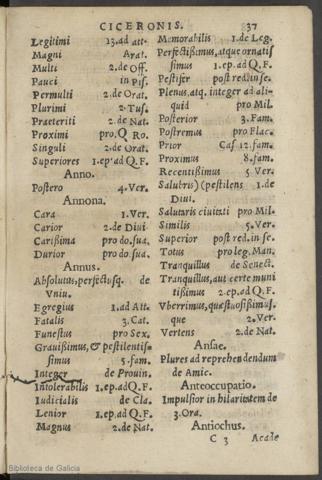 CICERONIS. 37
Legitimi 13.ad att.
Magni Arat.
Multi 2.de Off.
Pauci in Pis.
Permulti 2.de Orat.
Plurimi 2.Tus.
Praeteriti 2.de Nat.
Proximi pro.Q Ro.
Singuli 2.de Orat.
Superiores 1.ep.ad Q.F.
Anno.
Postero 4.Ver.
Annona.
Cara 1.Ver.
Carior 2.de Diui
Carißima pro do.sua.
Durior pro do.sua.
Annus.
Absolutus, perfectusq. de
Vniu.
Egregius 1.ad Att.
Fatalis 3.Cat.
Funestus pro Sex.
Grauißimus, & pestilentis-
simus 5.fam.
Integer de Prouin.
Intolerabilis 1.ep.adQ.F.
Iudicialis de Cla.
Lenior 1.ep.ad Q.F.
Magnus 2.de Nat.
Memorabilis 1.de Leg.
Perfectißimus, atque ornatis
simus 1.ep.ad Q.F.
Pestifer post red.in se.
Plenus, atq. integer ad ali-
quid pro Mil.
Posterior 3.Fam.
Postremus pro Flac.
Prior Cas 12.fam.
Proximus 8.fam.
Recentißimus 5.Ver.
Salubris) (pestilens 1.de
Diui.
Salutaris ciuitati pro Mil.
Similis 5.Ver.
Superior post red.in se.
Totus pro leg.Man.
Tranquillus de Senect.
Tranquillus, aut certe muni
tißimus 2.ep.ad Q.F.
Vberrimus, quæstuosißimus-
que 2.Ver.
Vertens 2.de Nat.
Ansae.
Plures ad reprehendendum
de Amic.
Anteoccupatio.
Impulsior in hilaritatem de
3.Ora.
Antiochus.
C 3 Acade
Biblioteca de Galicia